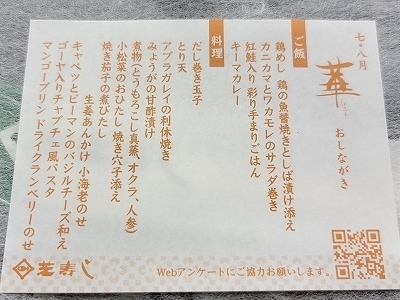 七・八月
華
おしながき
ご飯
鶏めし 鶏の魚醤焼きとしば漬け添え
カニカマとワカモレのサラダ巻き
紅鮭入り 彩り手まりごはん
キーマカレー
料理
だし巻き玉子
とり天
アブラガレイの利休焼き
みょうがの甘酢漬け
煮物(とうもろこし真蒸、オクラ、人参)
小松菜のおひたし 焼き穴子添え
焼き茄子の煮びたし
生姜あんかけ 小海老のせ
キャベツとピーマンのバジルチーズ和え
ゴーヤ入りチャプチェ風パスタ
マンゴープリン ドライクランベリーのせ
芝寿し
Webアンケートにご協力お願いします。